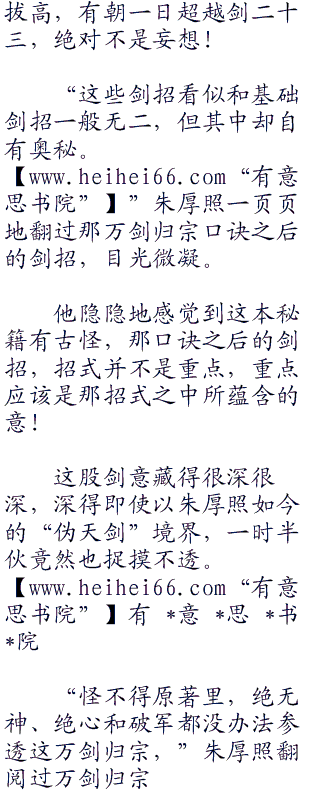 拔高，有朝一日超越剑二十
三，绝对不是妄想！
“这些剑招看似和基础
剑招一般无二，但其中却自
有奥秘。
【www.heihei66.com“有意
思书院”】”朱厚照一页页
地翻过那万剑归宗口诀之后
的剑招，目光微凝。
他隐隐地感觉到这本秘
籍有古怪，那口诀之后的剑
招，招式并不是重点，重点
应该是那招式之中所蕴含的
意！
这股剑意藏得很深很
深，深得即使以朱厚照如今
的“伪天剑”境界，一时半
伙竟然也捉摸不透。
【www.heihei66.com“有意
思书院”】有 *意 *思 *书
*院
“怪不得原著里，绝无
神、绝心和破军都没办法参
透这万剑归宗，”朱厚照翻
阅过万剑归宗